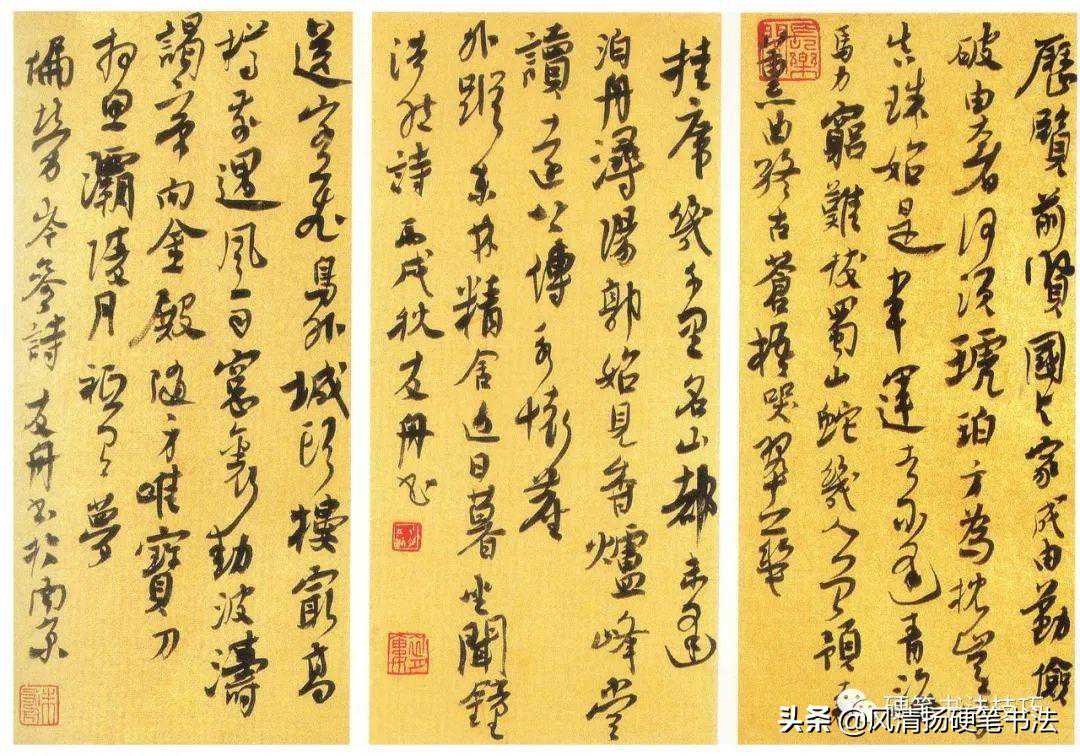 歷覽前賢國与家成由勤儉
破由奢何須琥珀方為枕豈得
真珠始是車運去不逢青海
馬力窮難拔蜀山蛇幾人曾預南
薰曲終古蒼梧哭翠華
挂席幾千里名山都未逢
泊舟潯陽郭始見香爐峰嘗
讀遠公傳永懷塵
外蹤東林精舍近日暮坐聞鐘
浩然詩 丙戌秋友舟書
送客飛鳥外城頭樓最高
樽前遇風雨窗裏動波濤
謁帝向金殿隨身唯寶刀
相思灞陵月祗有夢
偏勞岑參詩友舟書於南京
硬笔书法技巧
头条 @风清扬硬笔书法